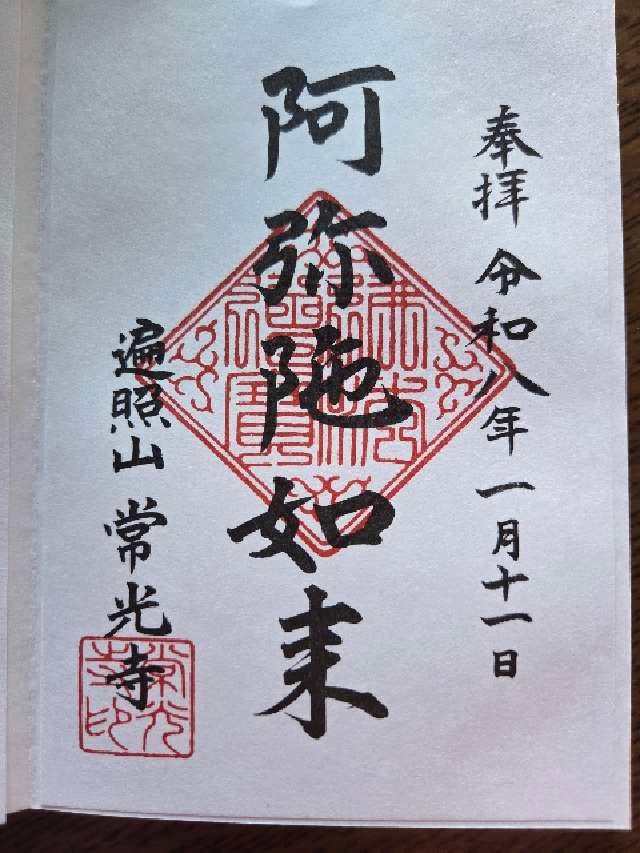 奉拝 令和八年一月十一日
阿弥陀如来
遍照山 常光寺
佛法僧寶
常光寺印